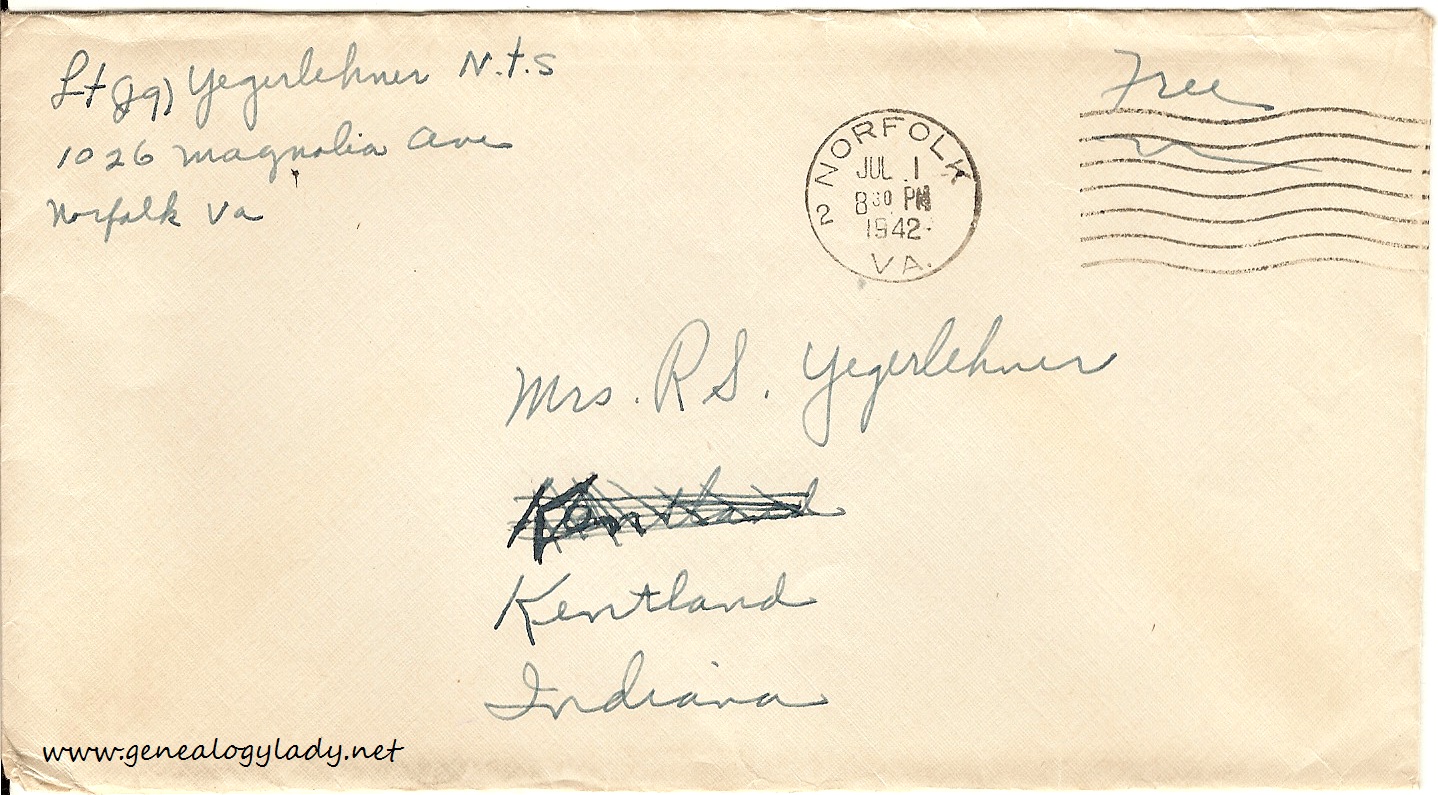 Lt (jg) Yegerlehner N.t.S
1026 Magnolia Ave
Norfolk Va
Free
NORFOLK
JUL 1
8 30 PM
1942
2
VA.
Mrs. R S. Yegerlehner
Kentland
Kentland
Indiana
www.genealogylady.net